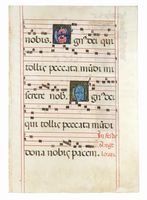 nobis. Agn' dei qui
tollis peccata mūdi mi
serere nob. Agn' dei
qui tollis peccata mundi
dona nobis pacem.